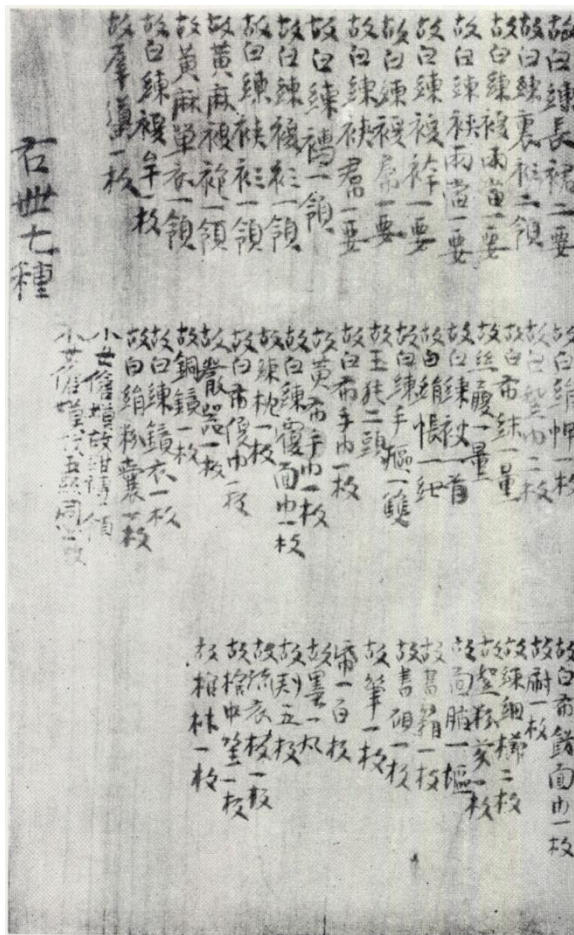 故白練長裙二要
故白練裏衫二領
故白練複兩當一要
故白練裌兩當一要
故白練複袴一要
故白練複帬一要
故白練裌裙一要
故白練一領
故白練複衫一領
故白練裌衫一領
故黃麻複袍一領
故黃麻單衣一領
故白練複一枚
故犀導一枚
右卅七種
故白絹帕一枚
故白巾二枚
故白布袜一量
故絲履一量
故白練被一首
故白絹帳一
故白練手樞一雙
故玉㹠二頭
故白布手巾一枚
故黃布手巾一枚
故白練覆面巾一枚
故練枕一枚
故白布巾一枚
故嚴器一枚
故銅鏡一枚
故白練鏡衣一枚
故白絹粉囊一枚
小女故一領
小女故
故白布錯面巾一枚
故刷一枚
故練細櫛二枚
故一枚
故面脂一樞
故書箱一枚
故書硯一枚
故筆一枚
紙一百枚
故墨一丸
故刺五枚
故梳衣一枚
故棺中笙一枚
故棺材一枚